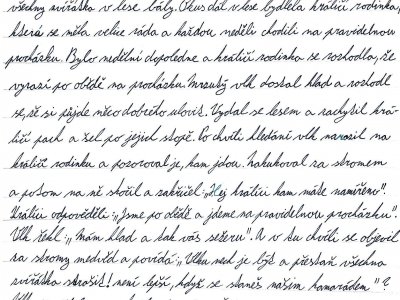 všechny zvířátka v lese bály. Okus dál v lese bydlela králičí rodinka,
která se měla velice ráda a každou neděli chodili na pravidelnou
procházku. Bylo nedělní dopoledne a králičí rodinka se rozhodla, že
vyrazí po obědě na procházku. Mrzutý vlk dostal hlad a rozhodl
se, že si půjde něco dobrého ulovit. Vydal se lesem a zachytil krá-
ličí pach a šel po jejich stopě. Po chvíli hledání vlk narazil na
králičí rodinku a pozoroval je, kam jdou. Nakukoval za stromem
a potom na ně skočil a zakřičel „Hej králíci kam máte namířeno".
Králíci odpověděli: „Jsme po obědě a jdeme na pravidelnou procházku".
Vlk řekl: „Mám hlad a tak vás sežeru". A v tu chvíli se objevil
za stromy medvěd a povídá: „Vlku nech je být a přestaň všechna
zvířátka strašit! není lepší, když se staneš naším kamarádem"?